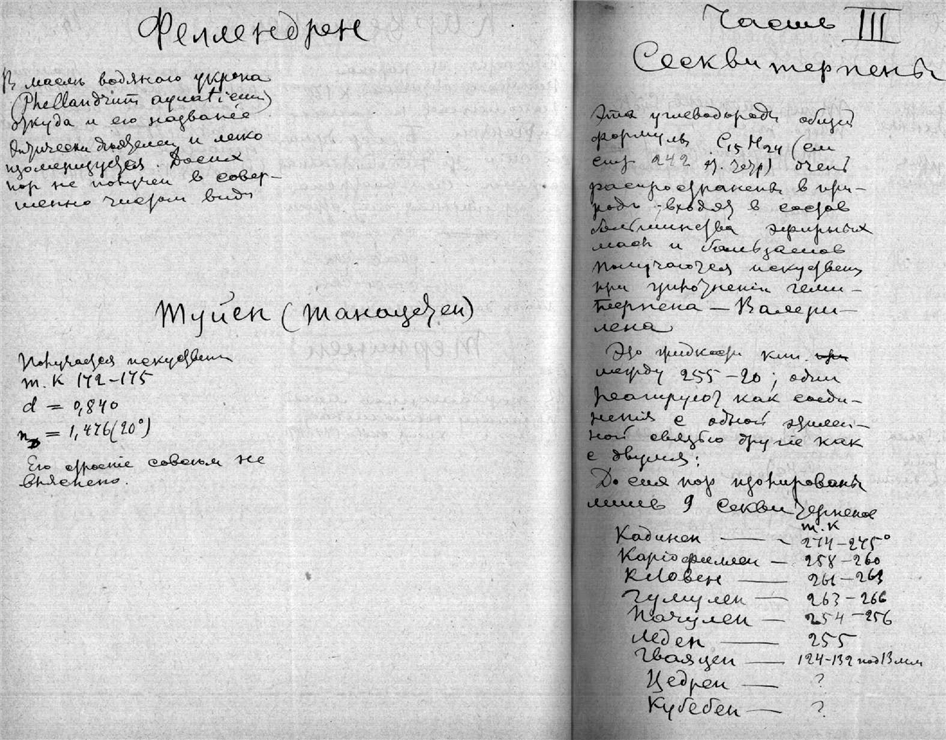 Феллендрен
В маслѣ водяного укропа
(Phellandrium aquaticum)
откуда и его названіе
Оптически дѣятелен и легко
изомеризуется До сих
пор не получен в совер-
шенно чистом видѣ
Туйен (танацетен)
Получается искуствен
т. К 172-175
d = 0,840
nD = 1,476 (20°)
Его строеніе совсѣм не
выяснено.
Часть III
Сесквитерпены
Эти углеводороды общей
формулы C15H24 (см
стр 242 п. тетр) очень
распространены в при-
родѣ входя в состав
большинства эфирных
масл и бальзамов
Получаются искуствен
при уплотненіи геми-
терпена — Валери-
лена
Это жидкости кип.
между 255-20; одни
реагируют как соеди-
ненія с одной этилен-
ной связью другіе как
с двумя;
До сих пор изолированы
лишь 9 секвитерпенов
т. К
Кадинен — 274-275°
Каріофиллен — 258-260
Кловен — 261-263
Гумулен — 263-266
Пачулен — 254-256
Леден — 255
Гваяцен — 124-132 под 13 мм
Цедрен — ?
Кубебен — ?